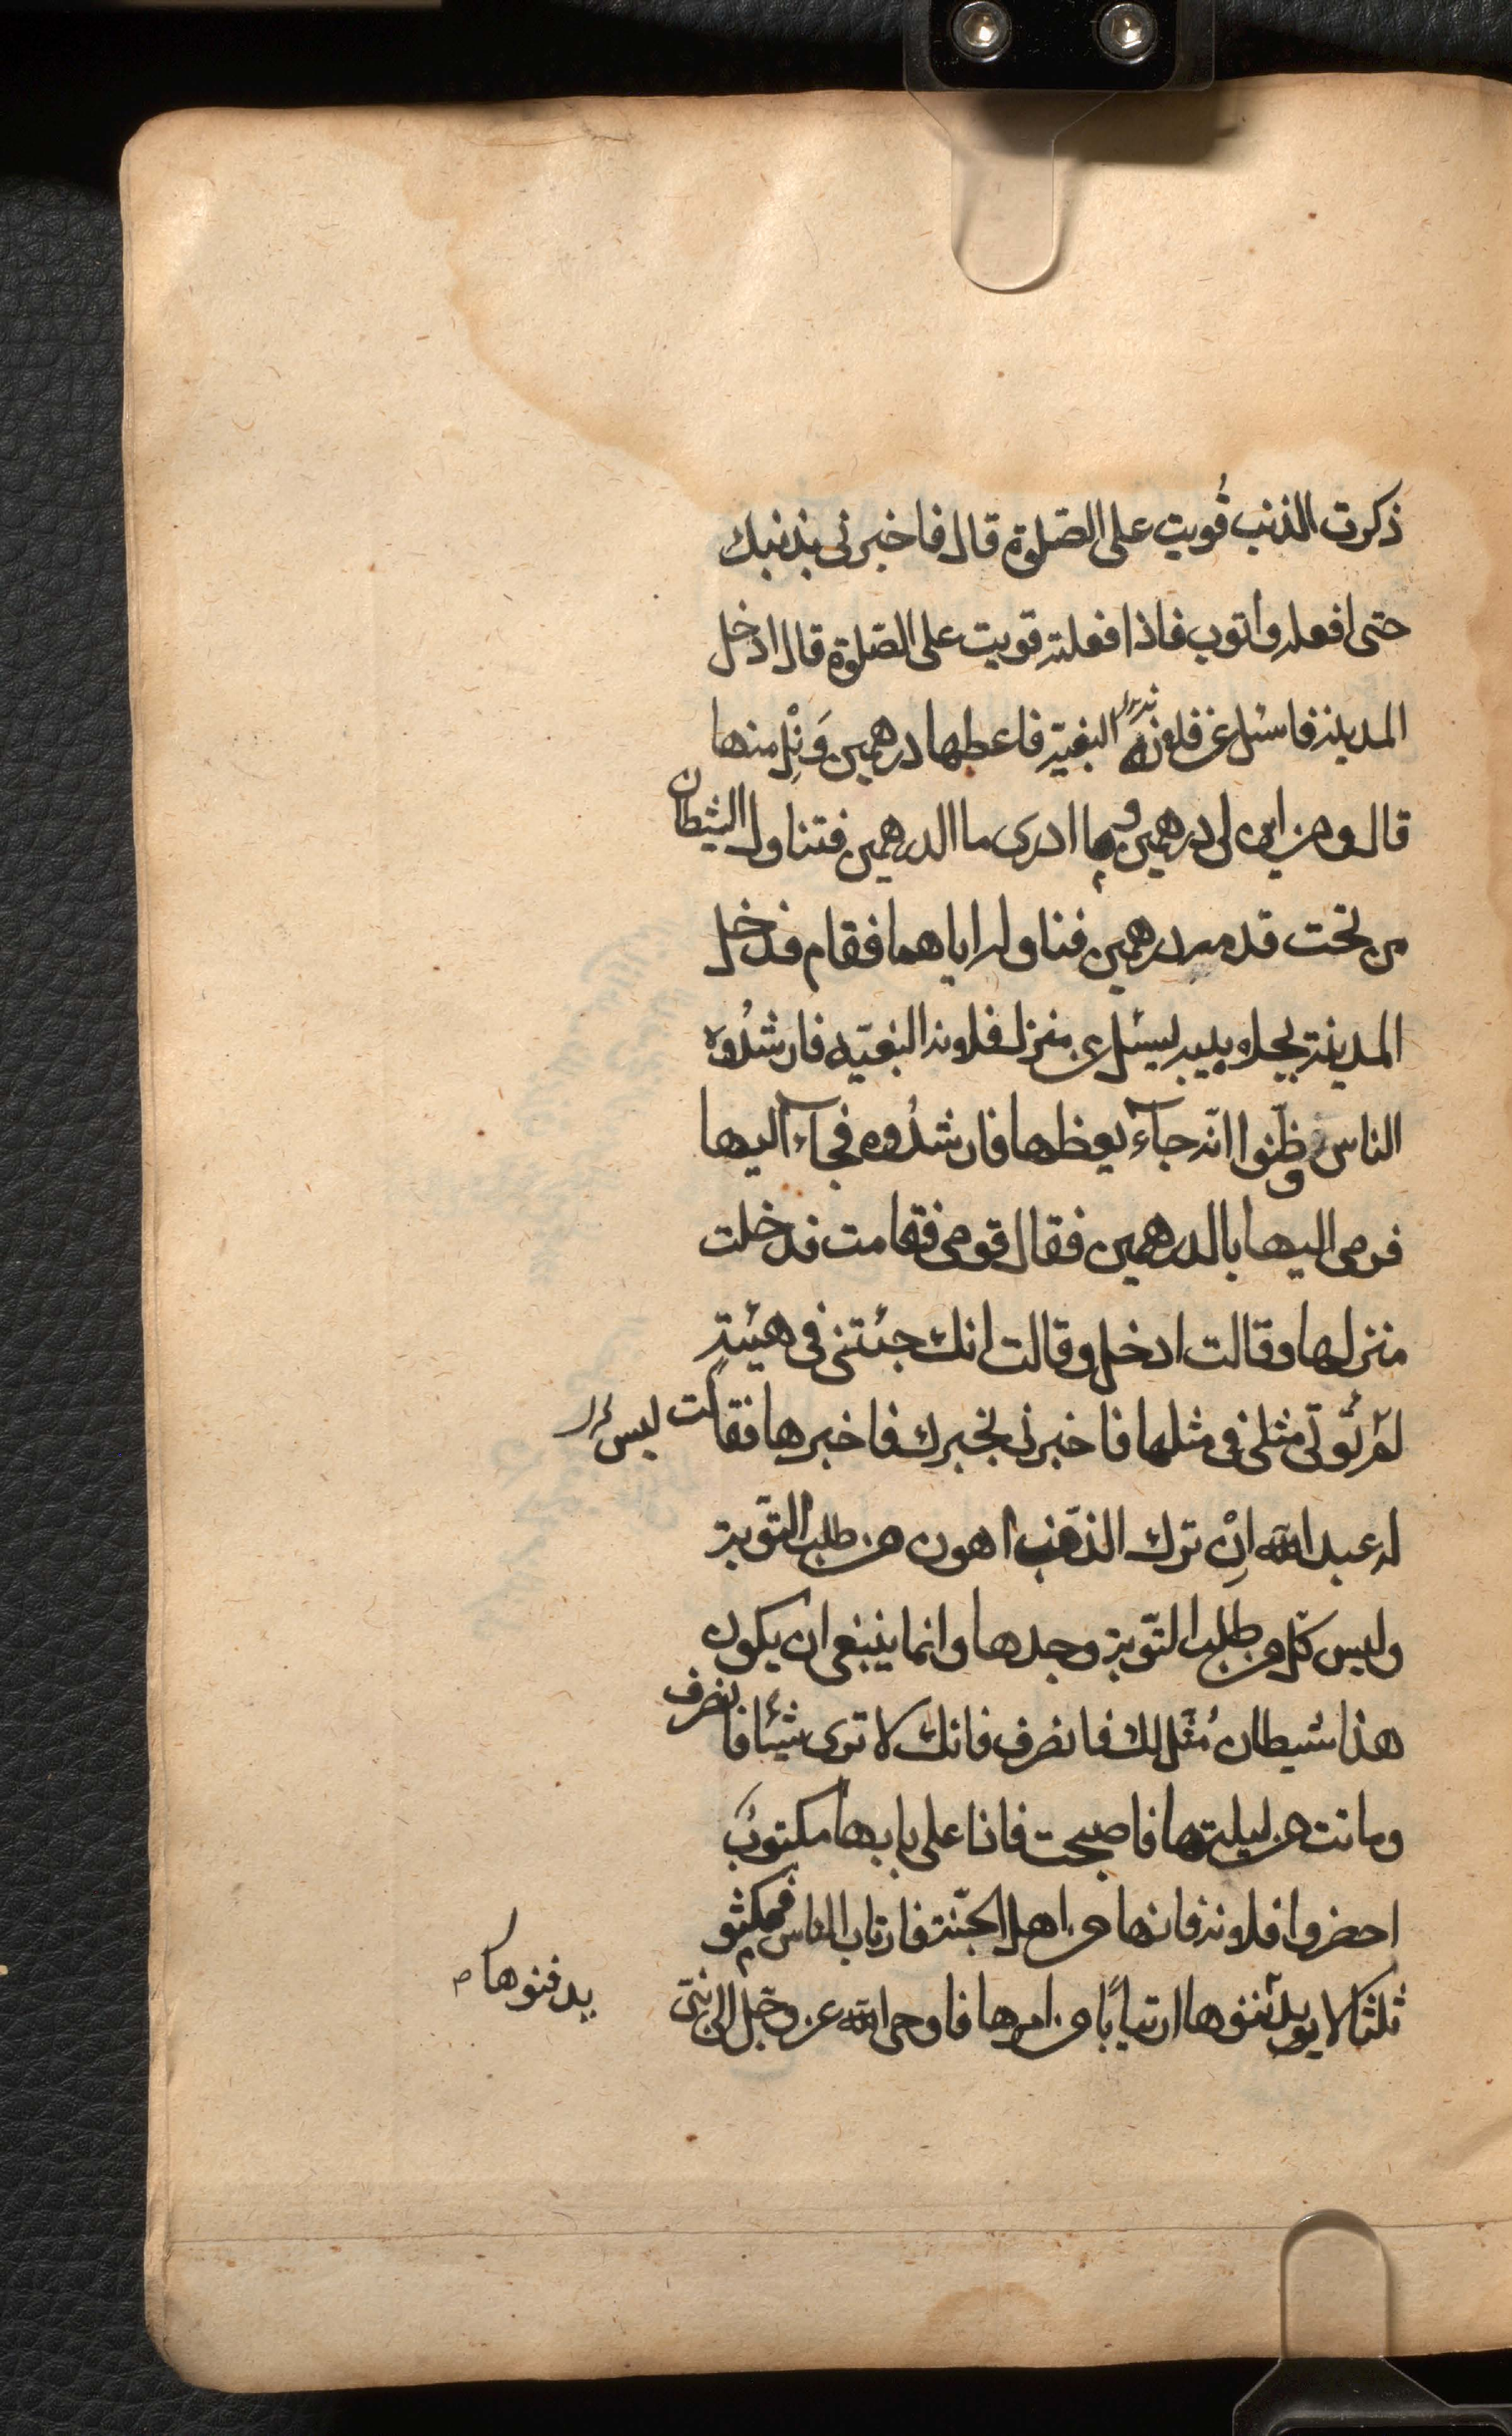 ذكرت الذنب قُويت على الصّلوة قال فاخبرنى بذنبك
حتى افعله واتوب فاذا فعلته قويت على الصّلوة قال ادخل
المدينة فاسئل عن فلانة البغية فاعطها درهمين وَنِلْ منها
قال ومن اين لى درهمين وما ادرى ما الدرهمين فتناول الشيطان
من تحت قدمه درهمين فناوله اياهما فقام فدخل
المدينة بجلابيبه يسئل عن منزل فلانة البغيّه فارشدُوه
الناس وظنّوا انّه جآء يعظها فارشدُوه فجآء اليها
فرمى اليها بالدرهمين فقال قومى فقامت فدخلت
منزلها وقالت ادخل وقالت انك جئتنى فى هيئةٍ
لم يُؤتى مثلى فى مثلها فاخبرنى بخبرك فاخبرها فقالت
له عبد الله اِنْ ترك الذّنب اهون من طلب التّوبة
وليس كلّ من طلب التّوبة وجدها وانما ينبغى ان يكون
هذا شيطان مُثّل لك فانصرف فانك لا ترى شيئا فانصرف
وماتت من ليلتها فاصبحت فاذا على بابها مكتوبٌ
احضروا فلانة فانها من اهل الجنّة فارتاب الناس فمكثو
ثلثا لا يدفنوها ارتياباً من امرها فاوحى الله عز وجل الى نبىّ
يدفنوها